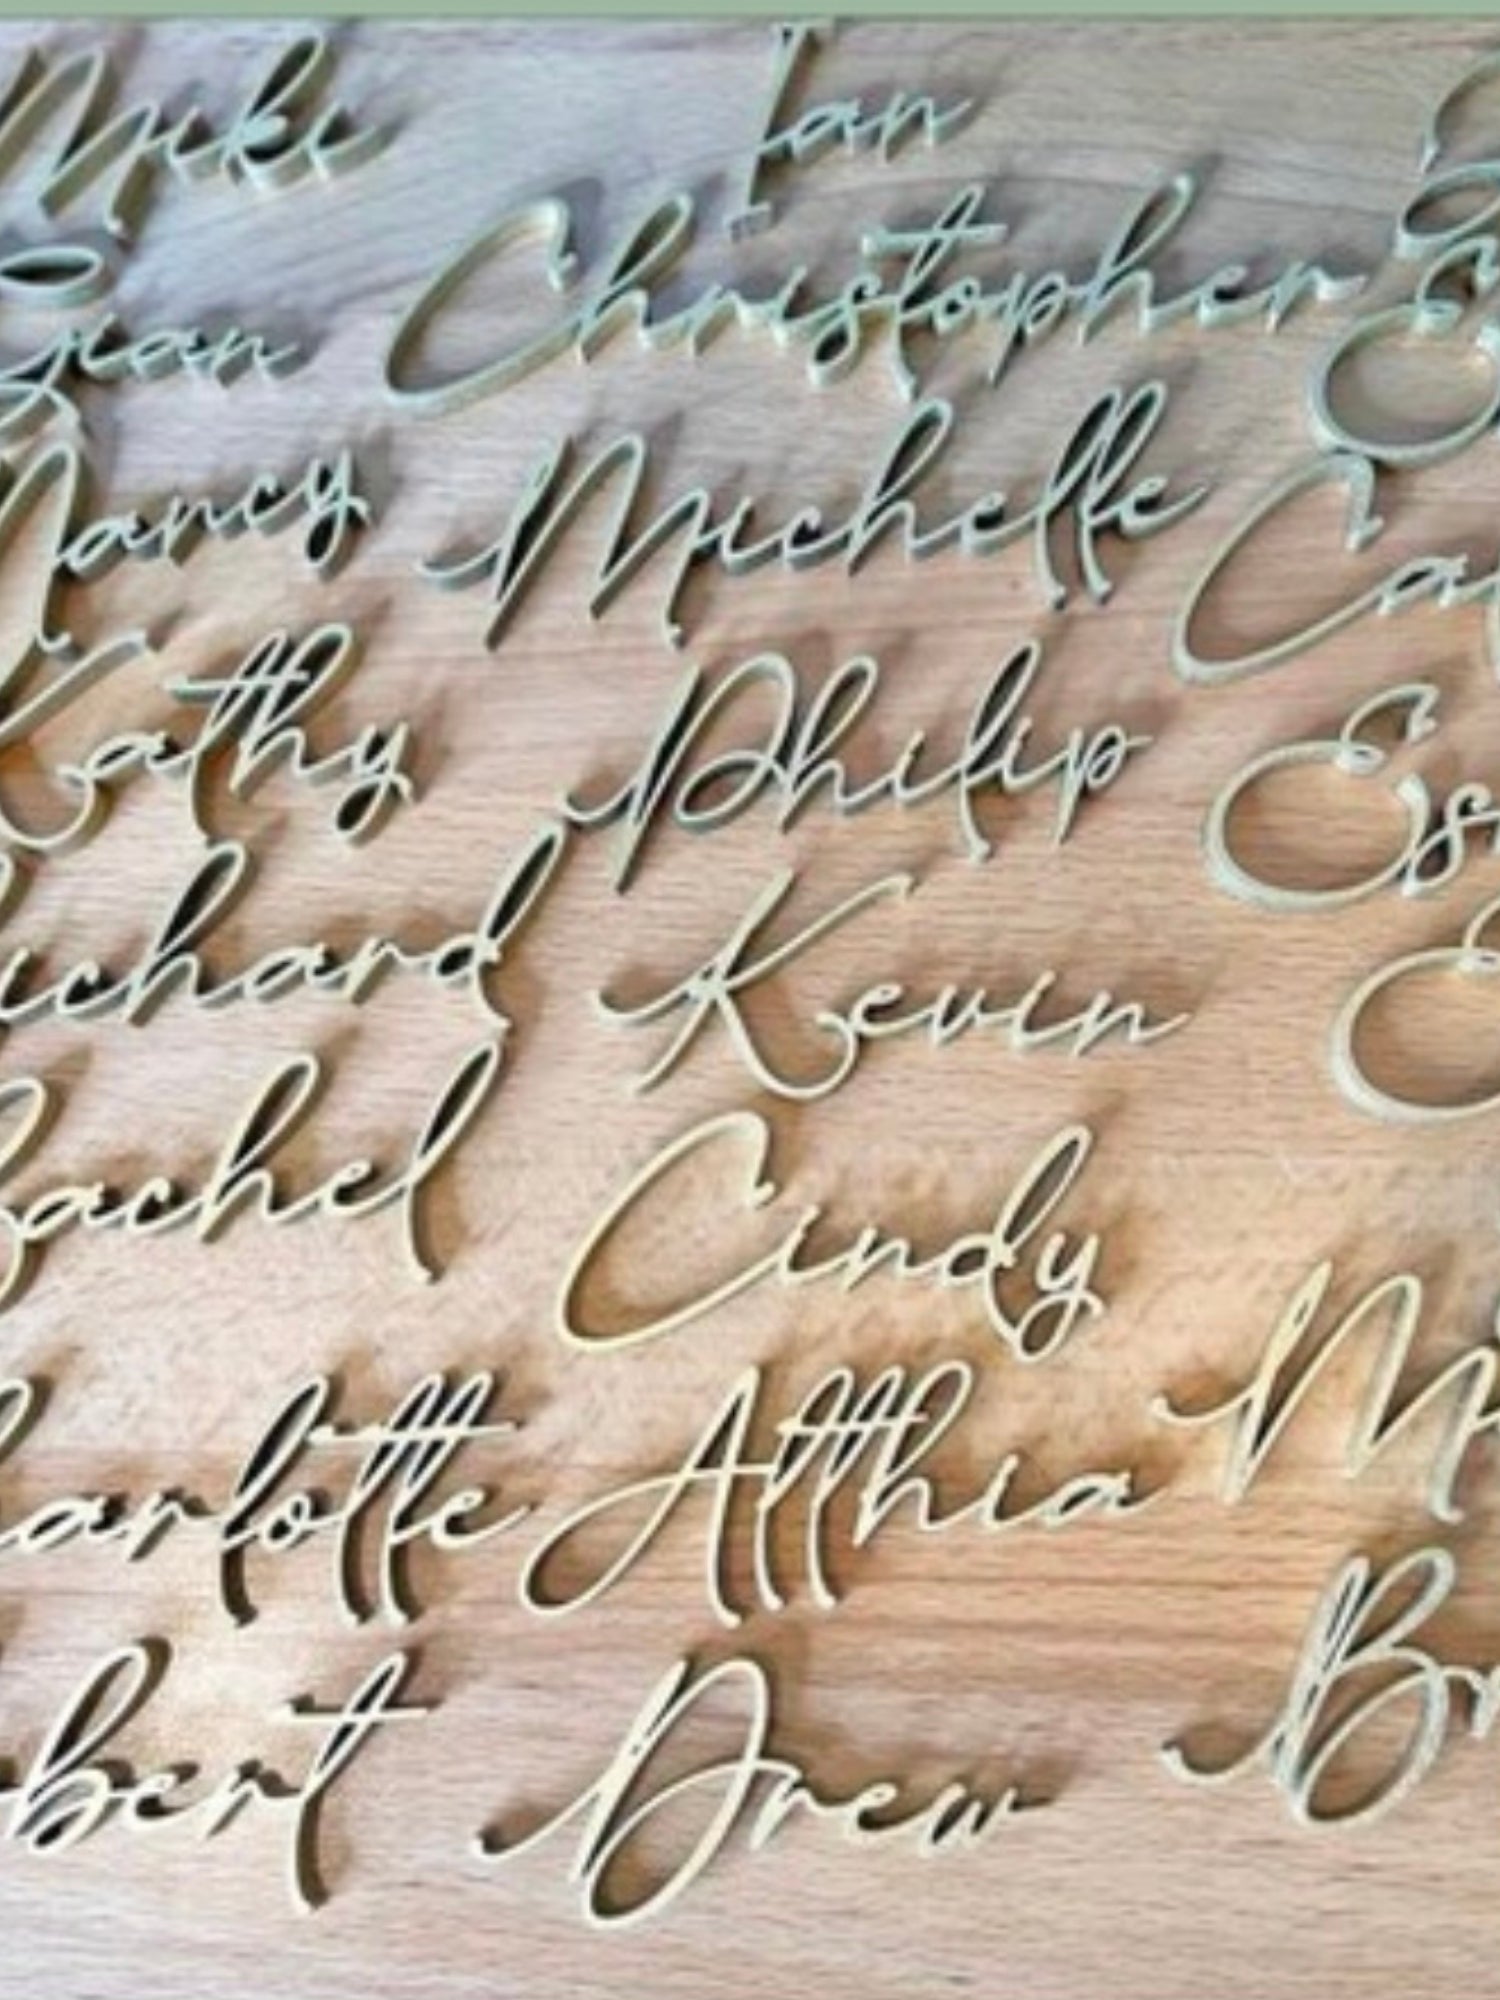 Miki Ian
Jean Christopher
Nancy Michelle
Kathy Philip
Richard Kevin
Rachel Cindy
Charlotte Atthia
Drew